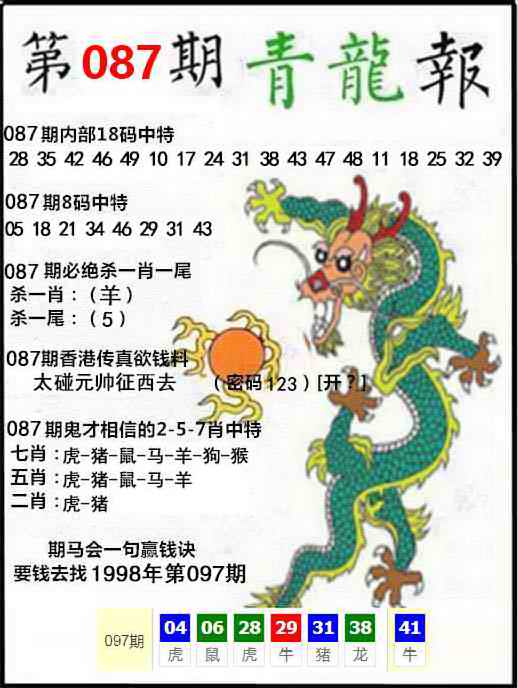 第087期青龍報
087期内部18码中特
28 35 42 46 49 10 17 24 31 38 43 47 48 11 18 25 32 39
087期8码中特
05 18 21 34 46 29 31 43
087 期必绝杀一肖一尾
杀一肖：（羊）
杀一尾：（5）
087期香港传真欲钱料
太碰元帅征西去 （密码123）[开？]
087期鬼才相信的2-5-7肖中特
七肖：虎-猪-鼠-马-羊-狗-猴
五肖：虎-猪-鼠-马-羊
二肖：虎-猪
期马会一句赢钱诀
要钱去找1998年第097期
097期 04 06 28 29 31 38 41
虎 鼠 虎 牛 猪 龙 牛